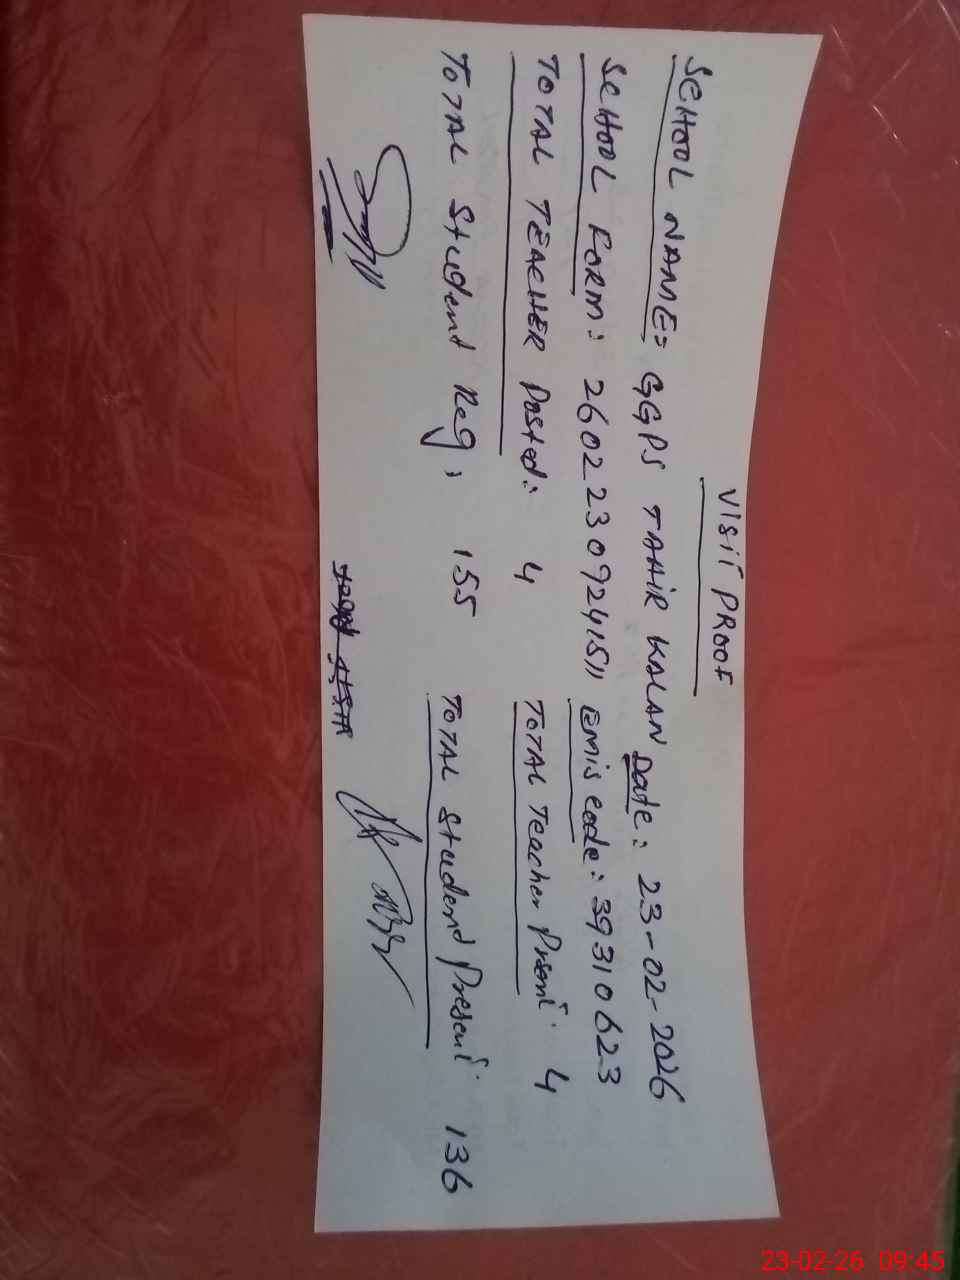 VISIT PROOF
SCHOOL NAME: GGPS TAHIR KALAN Date: 23-02-2026
SCHOOL FORM: 26022309241511 EMIS code: 39310623
TOTAL TEACHER Posted: 4 TOTAL Teacher Prsent: 4
TOTAL Student Reg: 155 TOTAL Student Present: 136
23-02-26 09:45